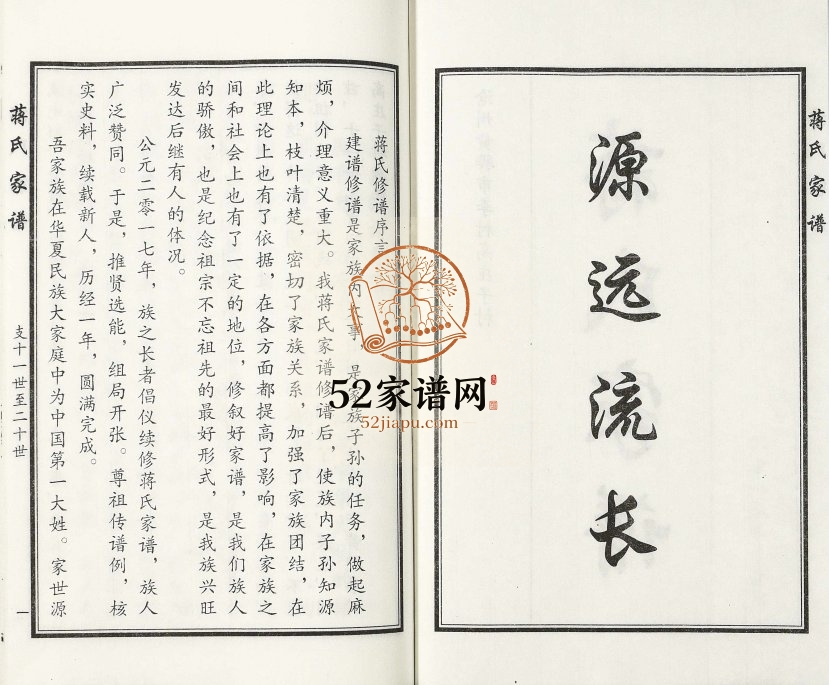 蒋氏家谱
源远流长
蒋氏修谱序言
建谱修谱是家族内大事，是家族子孙的任务，做起麻
烦，介理意义重大。我蒋氏家谱修谱后，使族内子孙知源
知本，枝叶清楚，密切了家族关系，加强了家族团结，在
此理论上也有了依据，在各方面都提高了影响，在家族之
间和社会上也有了一定的地位，修叙好家谱，是我们族人
的骄傲，也是纪念祖宗不忘祖先的最好形式，是我族兴旺
发达后继有人的体况。
公元二零一七年，族之长者倡仪续修蒋氏家谱，族人
广泛赞同。于是，推贤选能，组局开张。尊祖传谱例，核
实史料，续载新人，历经一年，圆满完成。
吾家族在华夏民族大家庭中为中国第一大姓。家世源
蒋氏家谱
支十一世至二十世
一
52家谱网
52jiapu.com